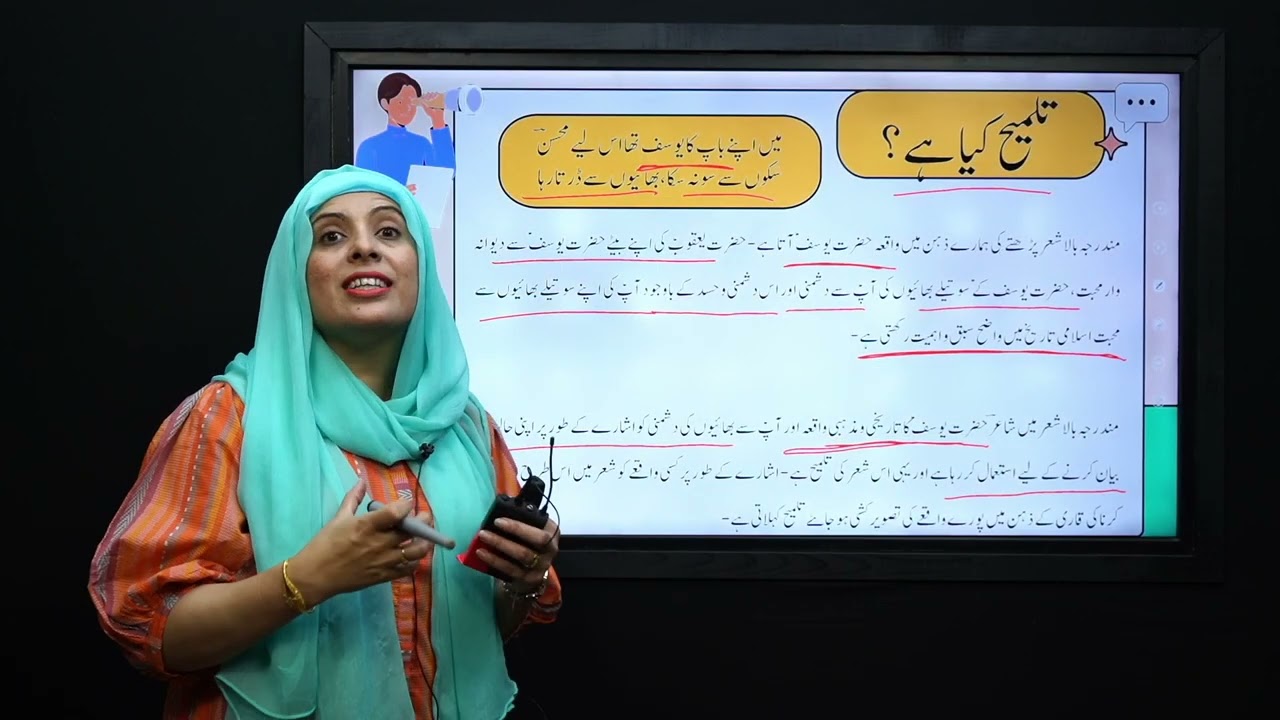 تلمیح کیا ہے؟
میں اپنے باپ کا یوسف تھا اس لیے محسنؔ
سکوں سے سو نہ سکا، بھائیوں سے ڈرتا رہا
مندرجہ بالا شعر پڑھتے کی ہمارے ذہن میں واقعہ حضرت یوسفؑ آتا ہے۔ حضرت یعقوبؑ کی اپنے بیٹے حضرت یوسفؑ سے دیوانہ
وار محبت، حضرت یوسفؑ کے سوتیلے بھائیوں کی آپؑ سے دشمنی اور اس دشمنی و حسد کے باوجود آپؑ کی اپنے سوتیلے بھائیوں سے
محبت اسلامی تاریخ میں واضح سبق و اہمیت رکھتی ہے۔
مندرجہ بالا شعر میں شاعر حضرت یوسفؑ کا تاریخی و مذہبی واقعہ اور آپؑ سے بھائیوں کی دشمنی کو اشارے کے طور پر اپنی
بیان کرنے کے لیے استعمال کر رہا ہے اور یہی اس شعر کی تلمیح ہے۔ اشارے کے طور پر کسی واقعے کو شعر میں اس
کرنا کی قاری کے ذہن میں پورے واقعے کی تصویر کشی ہو جائے تلمیح کہلاتی ہے۔